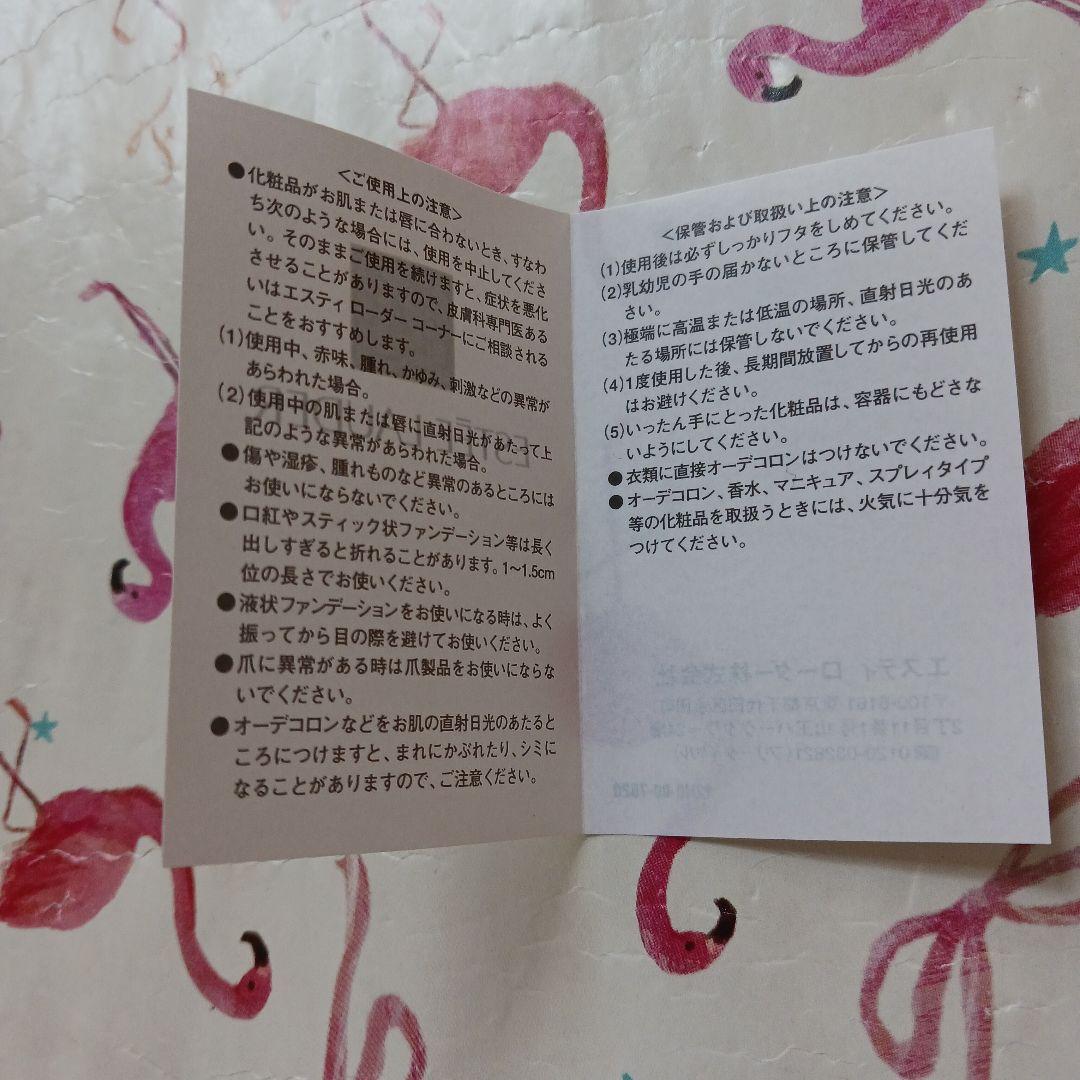 <ご使用上の注意>
●化粧品がお肌または唇に合わないとき、すなわ
ち次のような場合には、使用を中止してくださ
い。そのままご使用を続けますと、症状を悪化
させることがありますので、皮膚科専門医ある
いはエスティ ローダー コーナーにご相談される
ことをおすすめします。
(1)使用中、赤味、腫れ、かゆみ、刺激などの異常が
あらわれた場合。
(2)使用中の肌または唇に直射日光があたって上
記のような異常があらわれた場合。
●傷や湿疹、腫れものなど異常のあるところには
お使いにならないでください。
●口紅やスティック状ファンデーション等は長く
出しすぎると折れることがあります。1〜1.5cm
位の長さでお使いください。
●液状ファンデーションをお使いになる時は、よく
振ってから目の際を避けてお使いください。
●爪に異常がある時は爪製品をお使いにならな
いでください。
●オーデコロンなどをお肌の直射日光のあたると
ころにつけますと、まれにかぶれたり、シミに
なることがありますので、ご注意ください。
<保管および取扱い上の注意>
(1)使用後は必ずしっかりフタをしめてください。
(2)乳幼児の手の届かないところに保管してくだ
さい。
(3)極端に高温または低温の場所、直射日光のあ
たる場所には保管しないでください。
(4)1度使用した後、長期間放置してからの再使用
はお避けください。
(5)いったん手にとった化粧品は、容器にもどさな
いようにしてください。
●衣類に直接オーデコロンはつけないでください。
●オーデコロン、香水、マニキュア、スプレィタイプ
等の化粧品を取扱うときには、火気に十分気を
つけてください。
エスティ ローダー株式会社